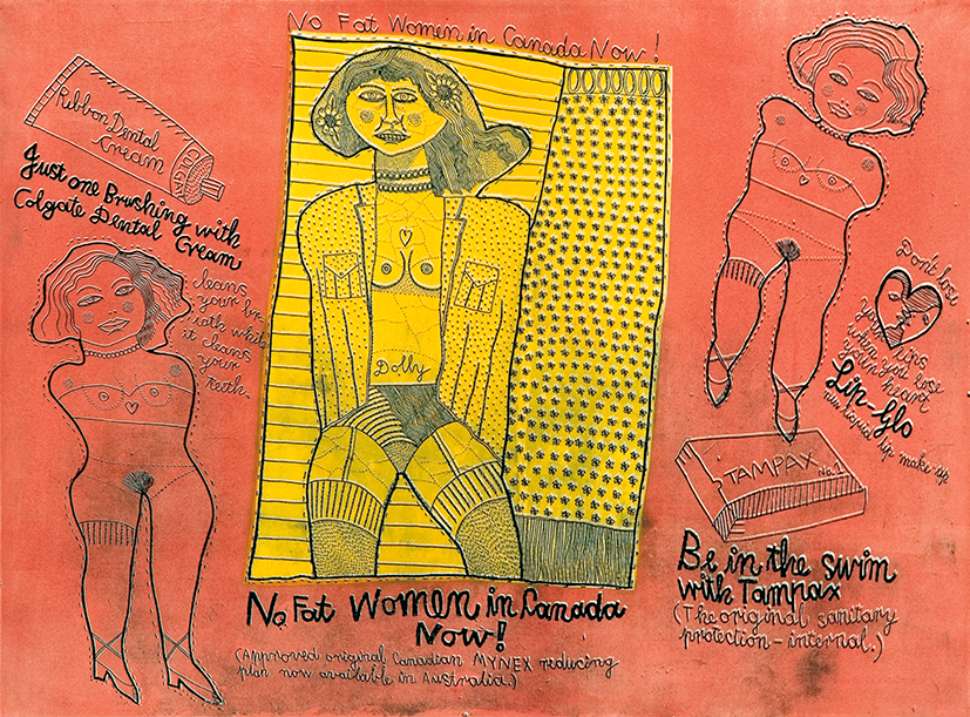 No Fat Women in Canada Now!
Ribbon Dental
Cream
Just one Brushing with
Colgate Dental Cream
cleans
your br
eath while
it cleans
your
teeth.
Dolly
No Fat Women in Canada
Now!
(Approved original Canadian MYNEX reducing
plan now available in Australia.)
Don't lose
your lips
when you lose
your heart
Lip-Glo
lip make-up
TAMPAX No.1
Be in the swim
with Tampax
(The original sanitary
protection - internal.)